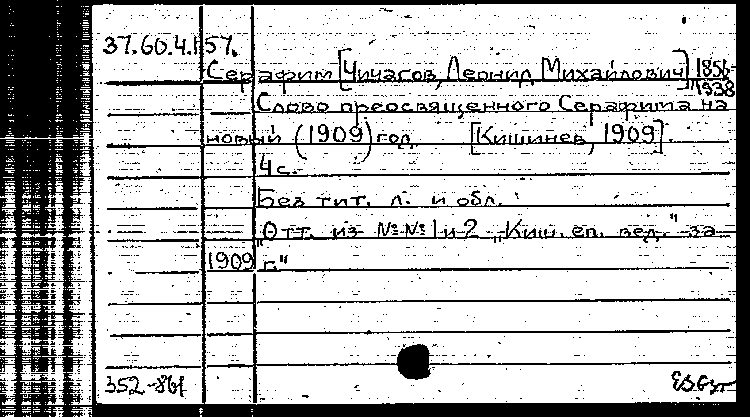 37.60.4.157.
Серафим [Чичагов, Леонид Михайлович] 1856-1938
Слово преосвященного Серафима на
новый (1909) год. [Кишинев, 1909].
4 с.
Без тит. л. и обл.
"Отт. из №№ 1 и 2 „Киш. еп. вед." за
1909 г."
352-861